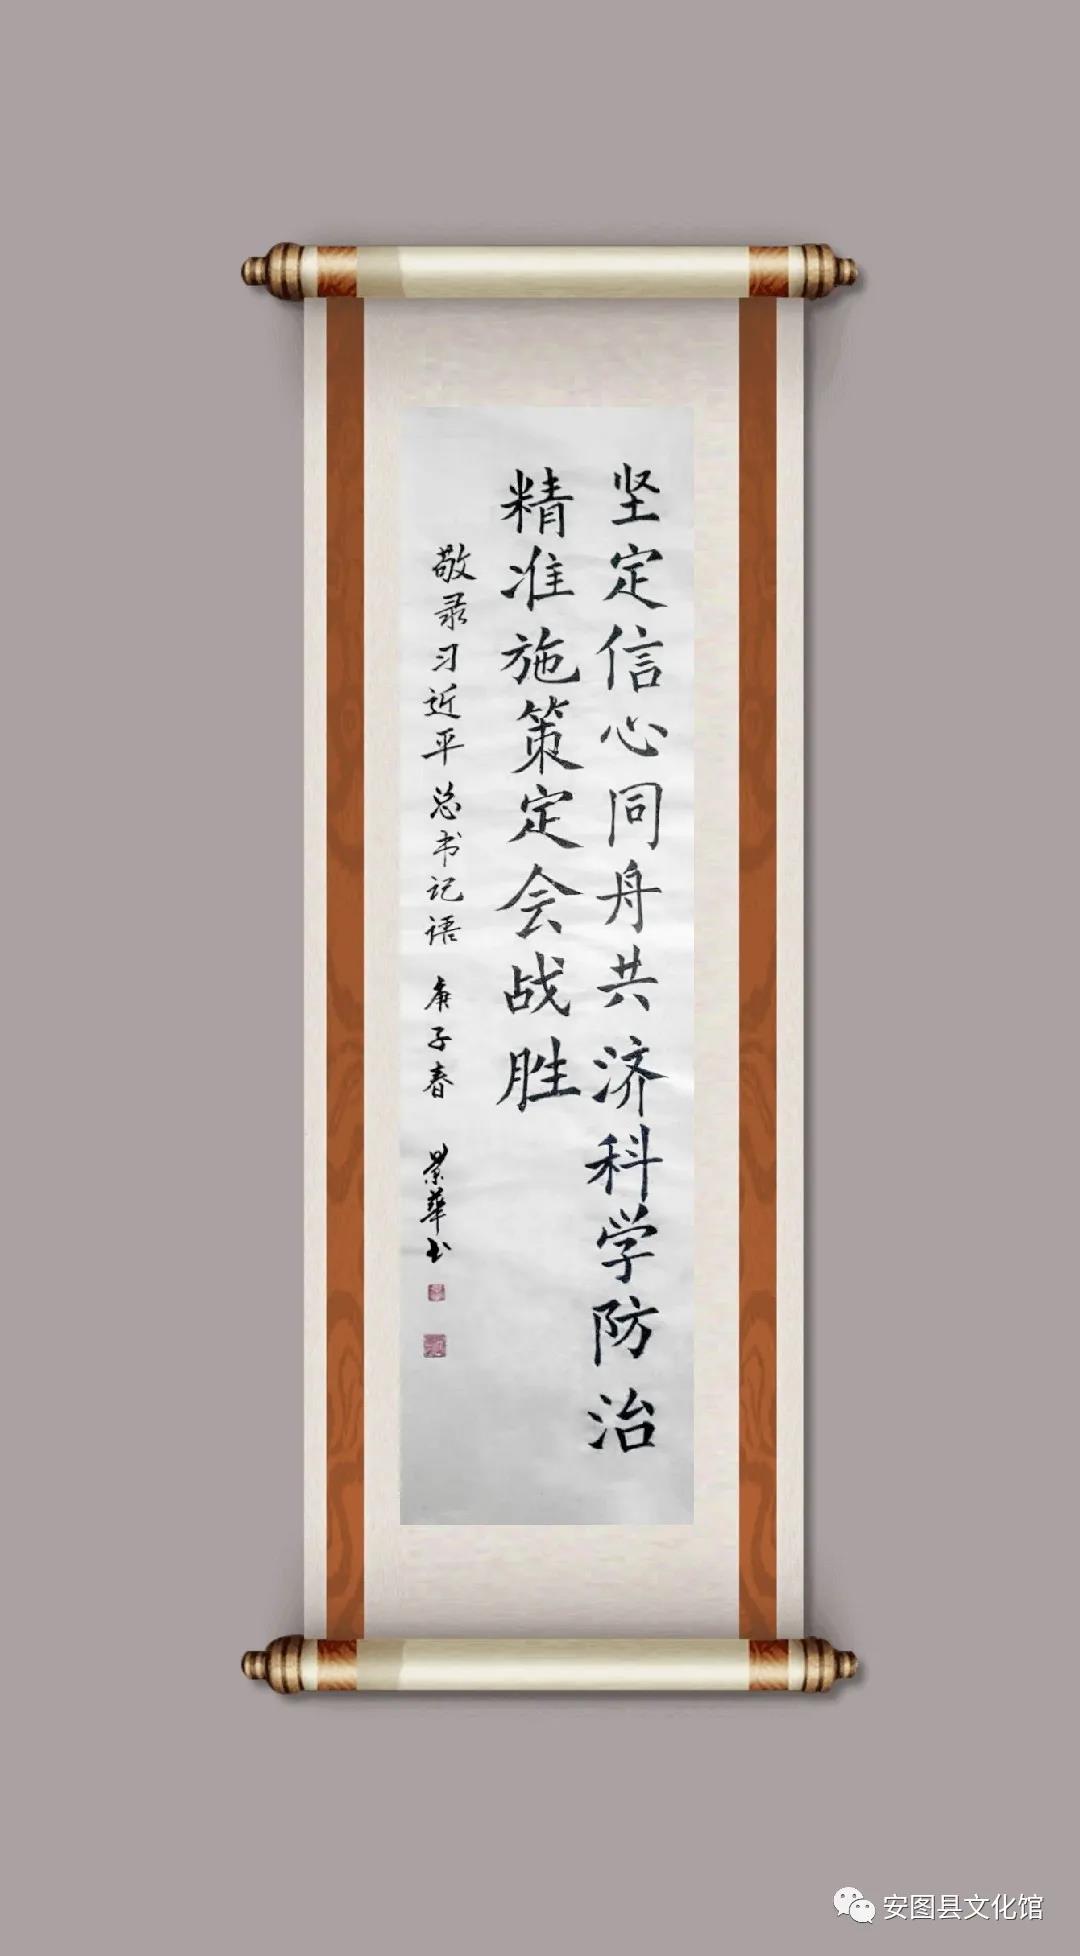 坚定信心同舟共济科学防治
精准施策定会战胜
敬录习近平总书记语 庚子春 景华书
安图县文化馆